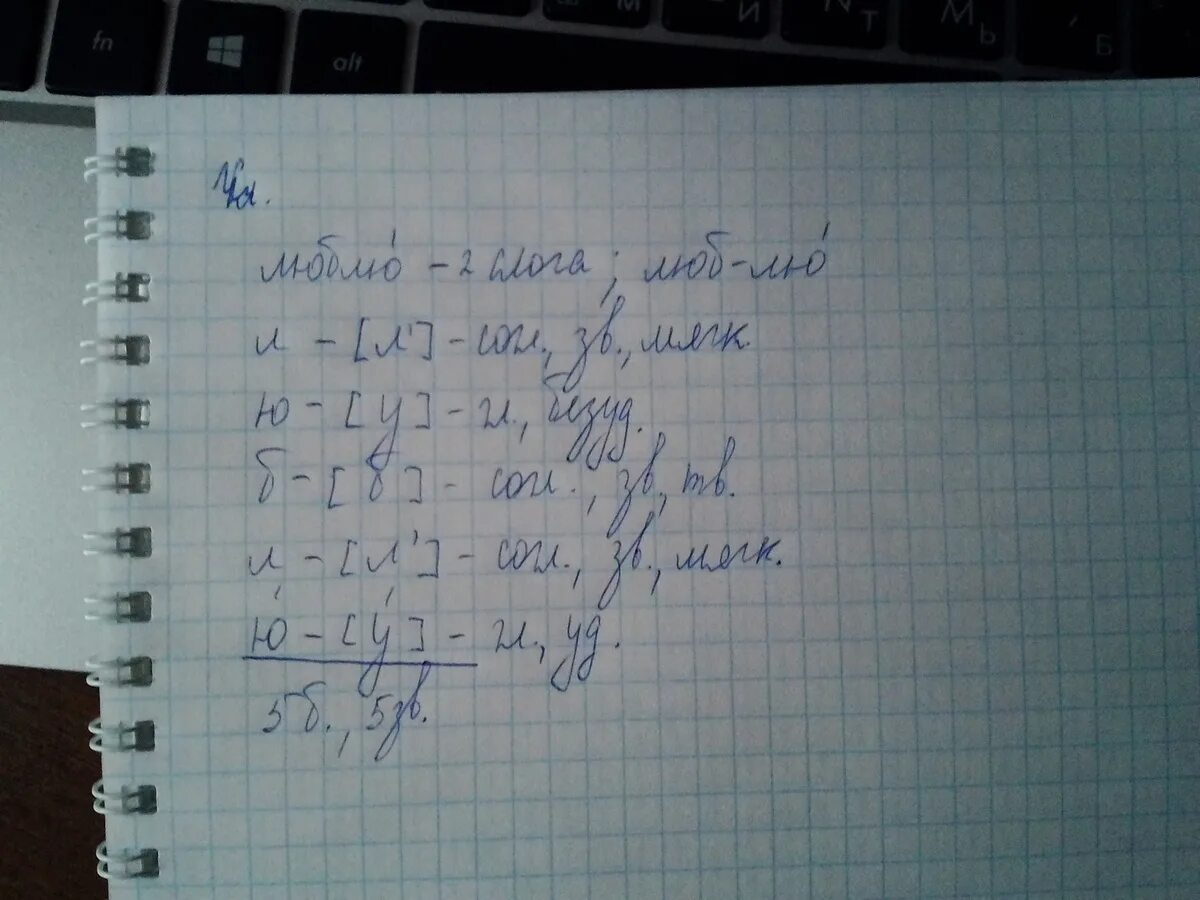 fn alt М И N Т М Ь Б
люблю́ – 2 слога; люб-лю́
л – [л'] – согл., зв., мягк.
ю – [у] – гл., безуд.
б – [б] – согл., зв., тв.
л – [л'] – согл., зв., мягк.
ю́ – [у́] – гл., уд.
5б., 5зв.